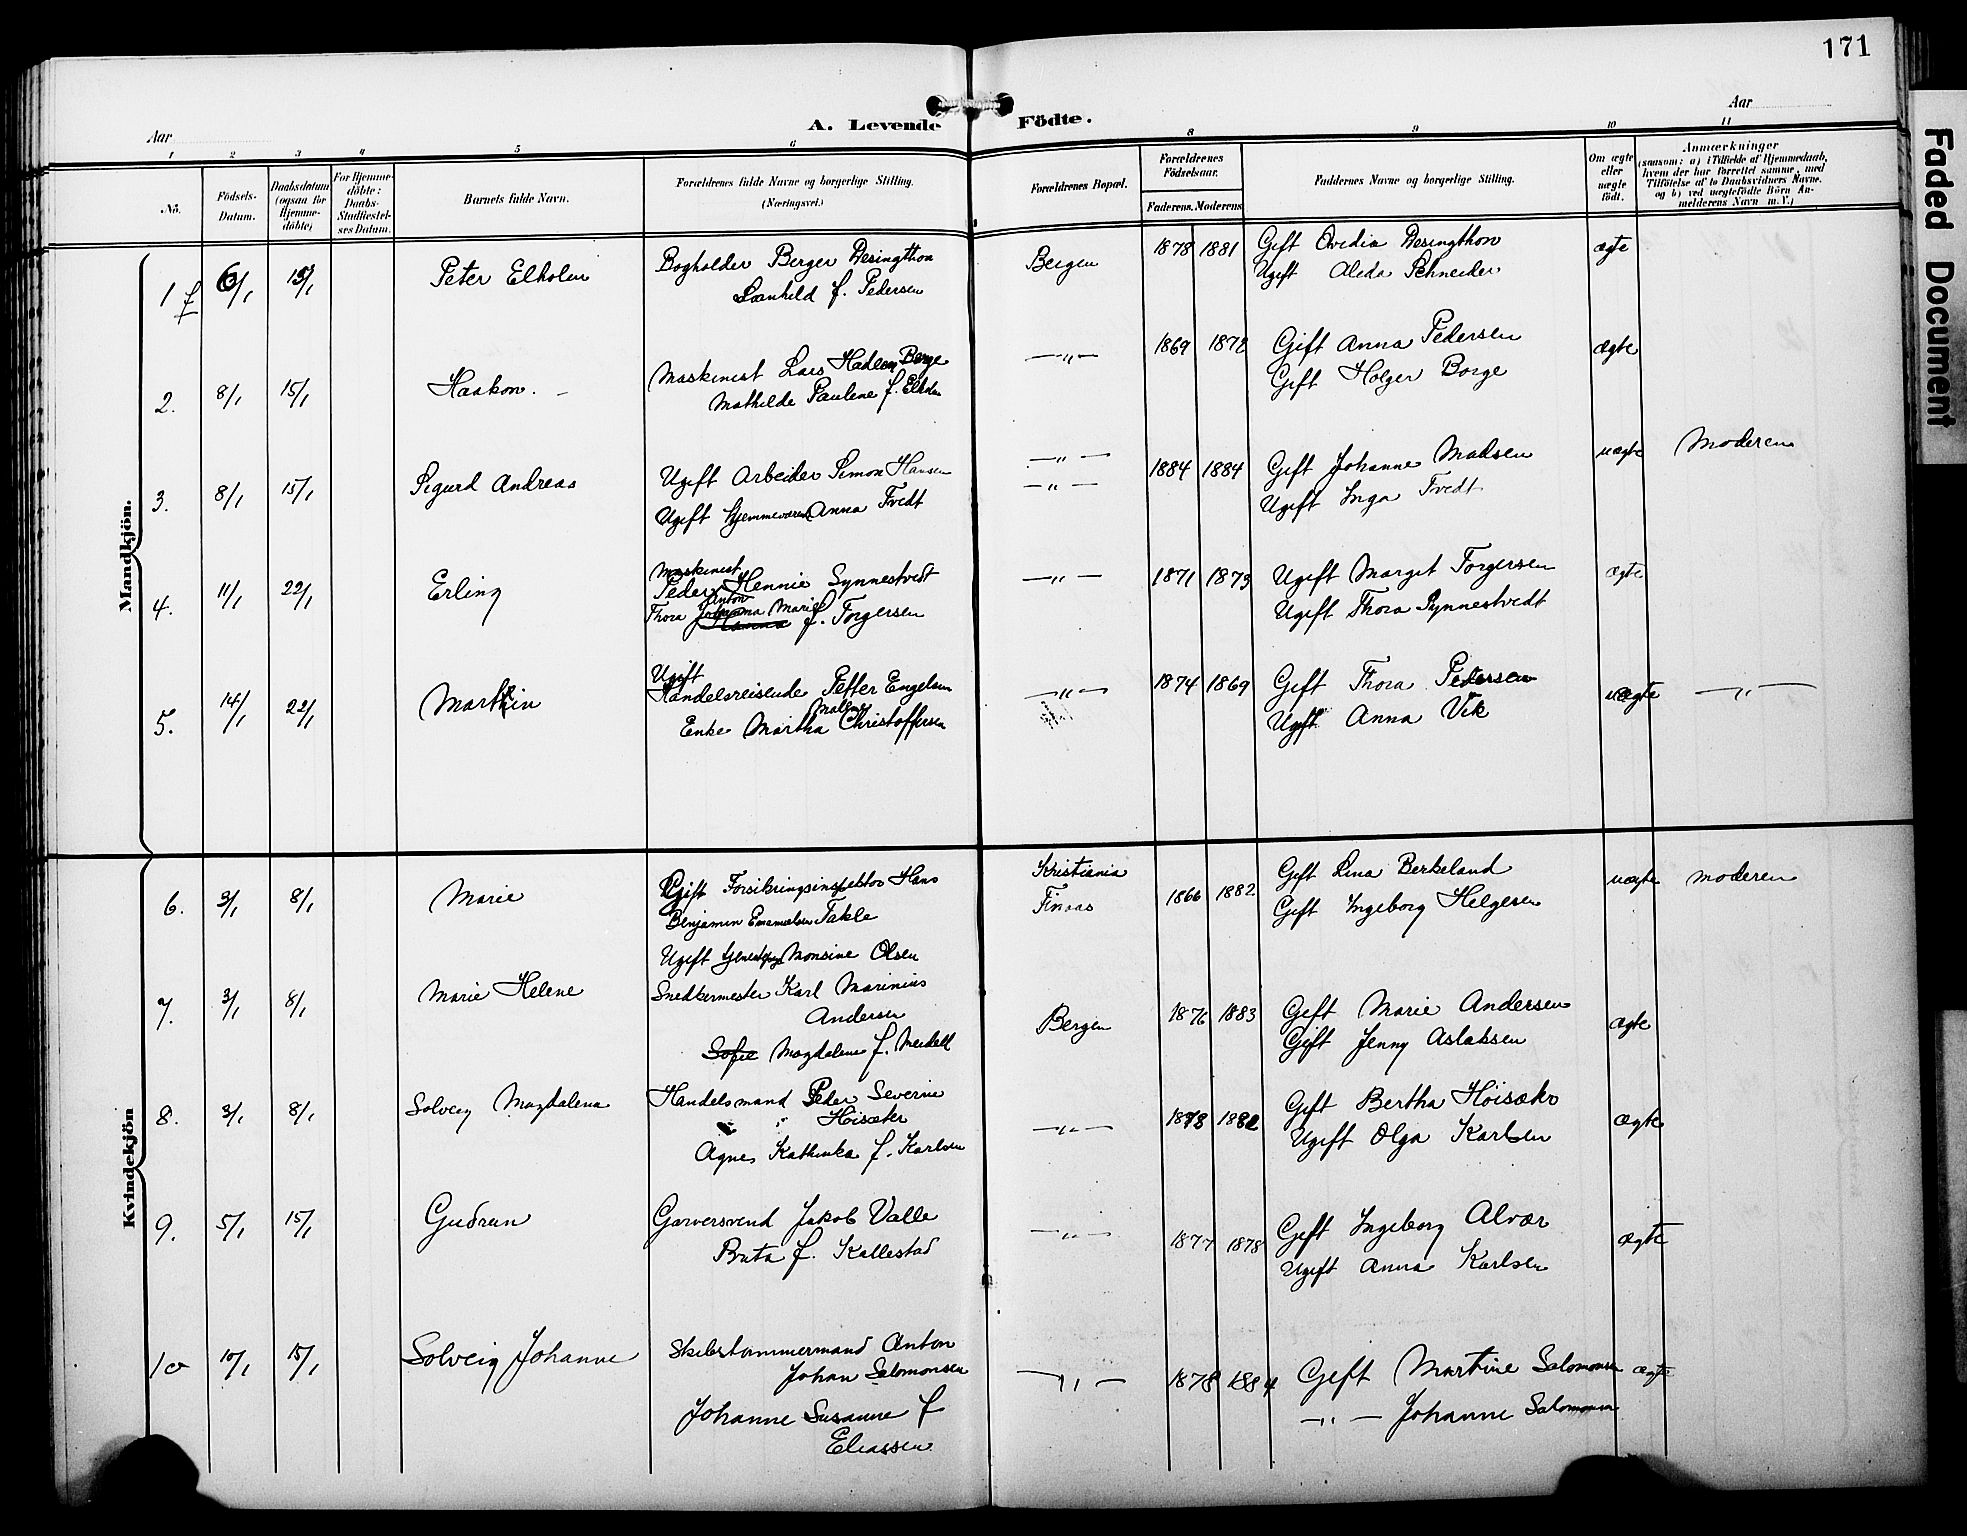 171
Aar
A. Levende Födte.
Aar
1 2 3 4 5 6 8 9 10 11
No.
Födsels-Datum.
Daabsdatum (ogsaa for Hjemme-döbte)
For Hjemme-döbte: Daabs-Stadfæstel-ses Datum.
Barnets fulde Navn.
Forældrenes fulde Navne og borgerlige Stilling. (Næringsvei.)
Forældrenes Bopæl.
Forældrenes Födselsaar.
Faderens. Moderens
Faddernes Navne og borgerlige Stilling.
Om ægte eller uægte födt.
Anmærkninger
(saasom: a) i Tilfælde af Hjemmedaab,
hvem der har forrettet samme, med
Tilföielse af to Daabsvidners Navne.
og b) ved uægtefödte Börn An-
melderens Navn m.V.)
Mandkjön.
1 f 6/1 15/1 Peter Elholm Bogholder Berger Desingthon Bergen 1878 1881 Gift Ovedia Desingthon ægte
f. Pedersen Ugift Aleda Schneider
2. 8/1 15/1 Haakon. Maskinist Lars Hadlem Berge —"— 1869 1872 Gift Anna Pedersen ægte
Mathilde Pauline f. Elholm Gift Holger Borge
3. 8/1 15/1 Sigurd Andreas Ugift Arbeider Simon Hansen —"— 1884 1884 Gift Johanne Madsen uægte Moderen
Ugift Hjemmeværende Anna Tvedt —"— Ugift Inga Tvedt
4. 11/1 22/1 Erling Maskinist
Peder Anton Hennie Synnestvedt —"— 1871 1873 Ugift Margit Torgersen ægte
Thora Johanna Marie f. Torgersen Ugift Thora Synnestvedt
5. 14/1 22/1 Martin Ugift
Handelsreisende Petter Engelsen —"— 1874 1869 Gift Thora Pedersen uægte —"—
Enke Martha Malene Christoffersen Ugift Anna Vik
Kvindekjön
6. 3/1 8/1 Marie Gift Forsikringsinspektør Hans Kristiania 1866 1882 Gift Lina Berkeland uægte Moderen
Benjamin Emanuelsen Takle Finaas Gift Ingeborg Helgesen
Ugift Monsine Olsen
7. 3/1 8/1 Marie Helene Snedkermester Karl Marinius Bergen 1876 1883 Gift Marie Andersen ægte
Andersen Gift Jenny Aslaksen
Sofie Magdalene f. Meidell
8. 3/1 8/1 Solveig Magdalena Handelsmand Peder Severin —"— 1878 1882 Gift Bertha Höisæter ægte
Höisæter Ugift Olga Karlsen
Agnes Kathinka f. Karlsen
9. 5/1 15/1 Gudrun Garversvend Jakob Valle —"— 1877 1878 Gift Ingeborg Alvær ægte
Brita f. Kallestad Ugift Anna Karlsen
10 10/1 15/1 Solveig Johanne Skibstømmermand Anton —"— 1878 1884 Gift Martine Salomonsen ægte
Johan Salomonsen —"— Johanne Salomonsen
Johanne Susanne f
Eliassen
Faded Document